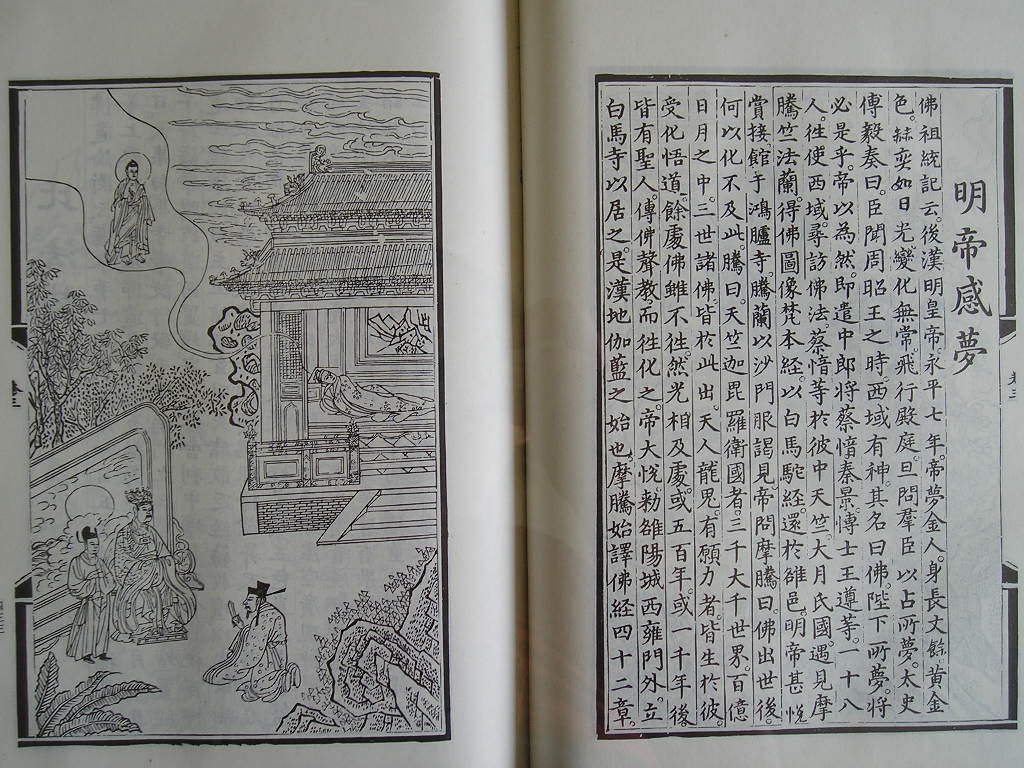 明帝感夢
佛祖統記云。後漢明皇帝。永平七年。帝夢金人。身長丈餘。黃金
色。赫奕如日光。變化無常。飛行殿庭。旦問羣臣。以占所夢。太史
傅毅奏曰。臣聞周昭王之時。西域有神。其名曰佛。陛下所夢。將
必是乎。帝以為然。即遣中郎將蔡愔秦景。博士王遵等。一十八
人。往使西域。尋訪佛法。蔡愔等於彼中天竺。大月氏國。遇見摩
騰竺法蘭。得佛圖像梵本經。以白馬駝經。還於雒邑。明帝甚悅
賞接館于鴻臚寺。騰蘭以沙門服謁見。帝問摩騰曰。佛出世後。
何以化不及此。騰曰。天竺迦毘羅衛國者。三千大千世界。百億
日月之中。三世諸佛。皆於此出。天人龍鬼。有願力者。皆生於彼。
受化悟道。餘處佛雖不往。然光相及處。或五百年。或一千年後
皆有聖人。傳佛聲教。而往化之。帝大悅。勑雒陽城西雍門外。立
白馬寺以居之。是漢地伽藍之始也。摩騰始譯佛經四十二章。
卷三